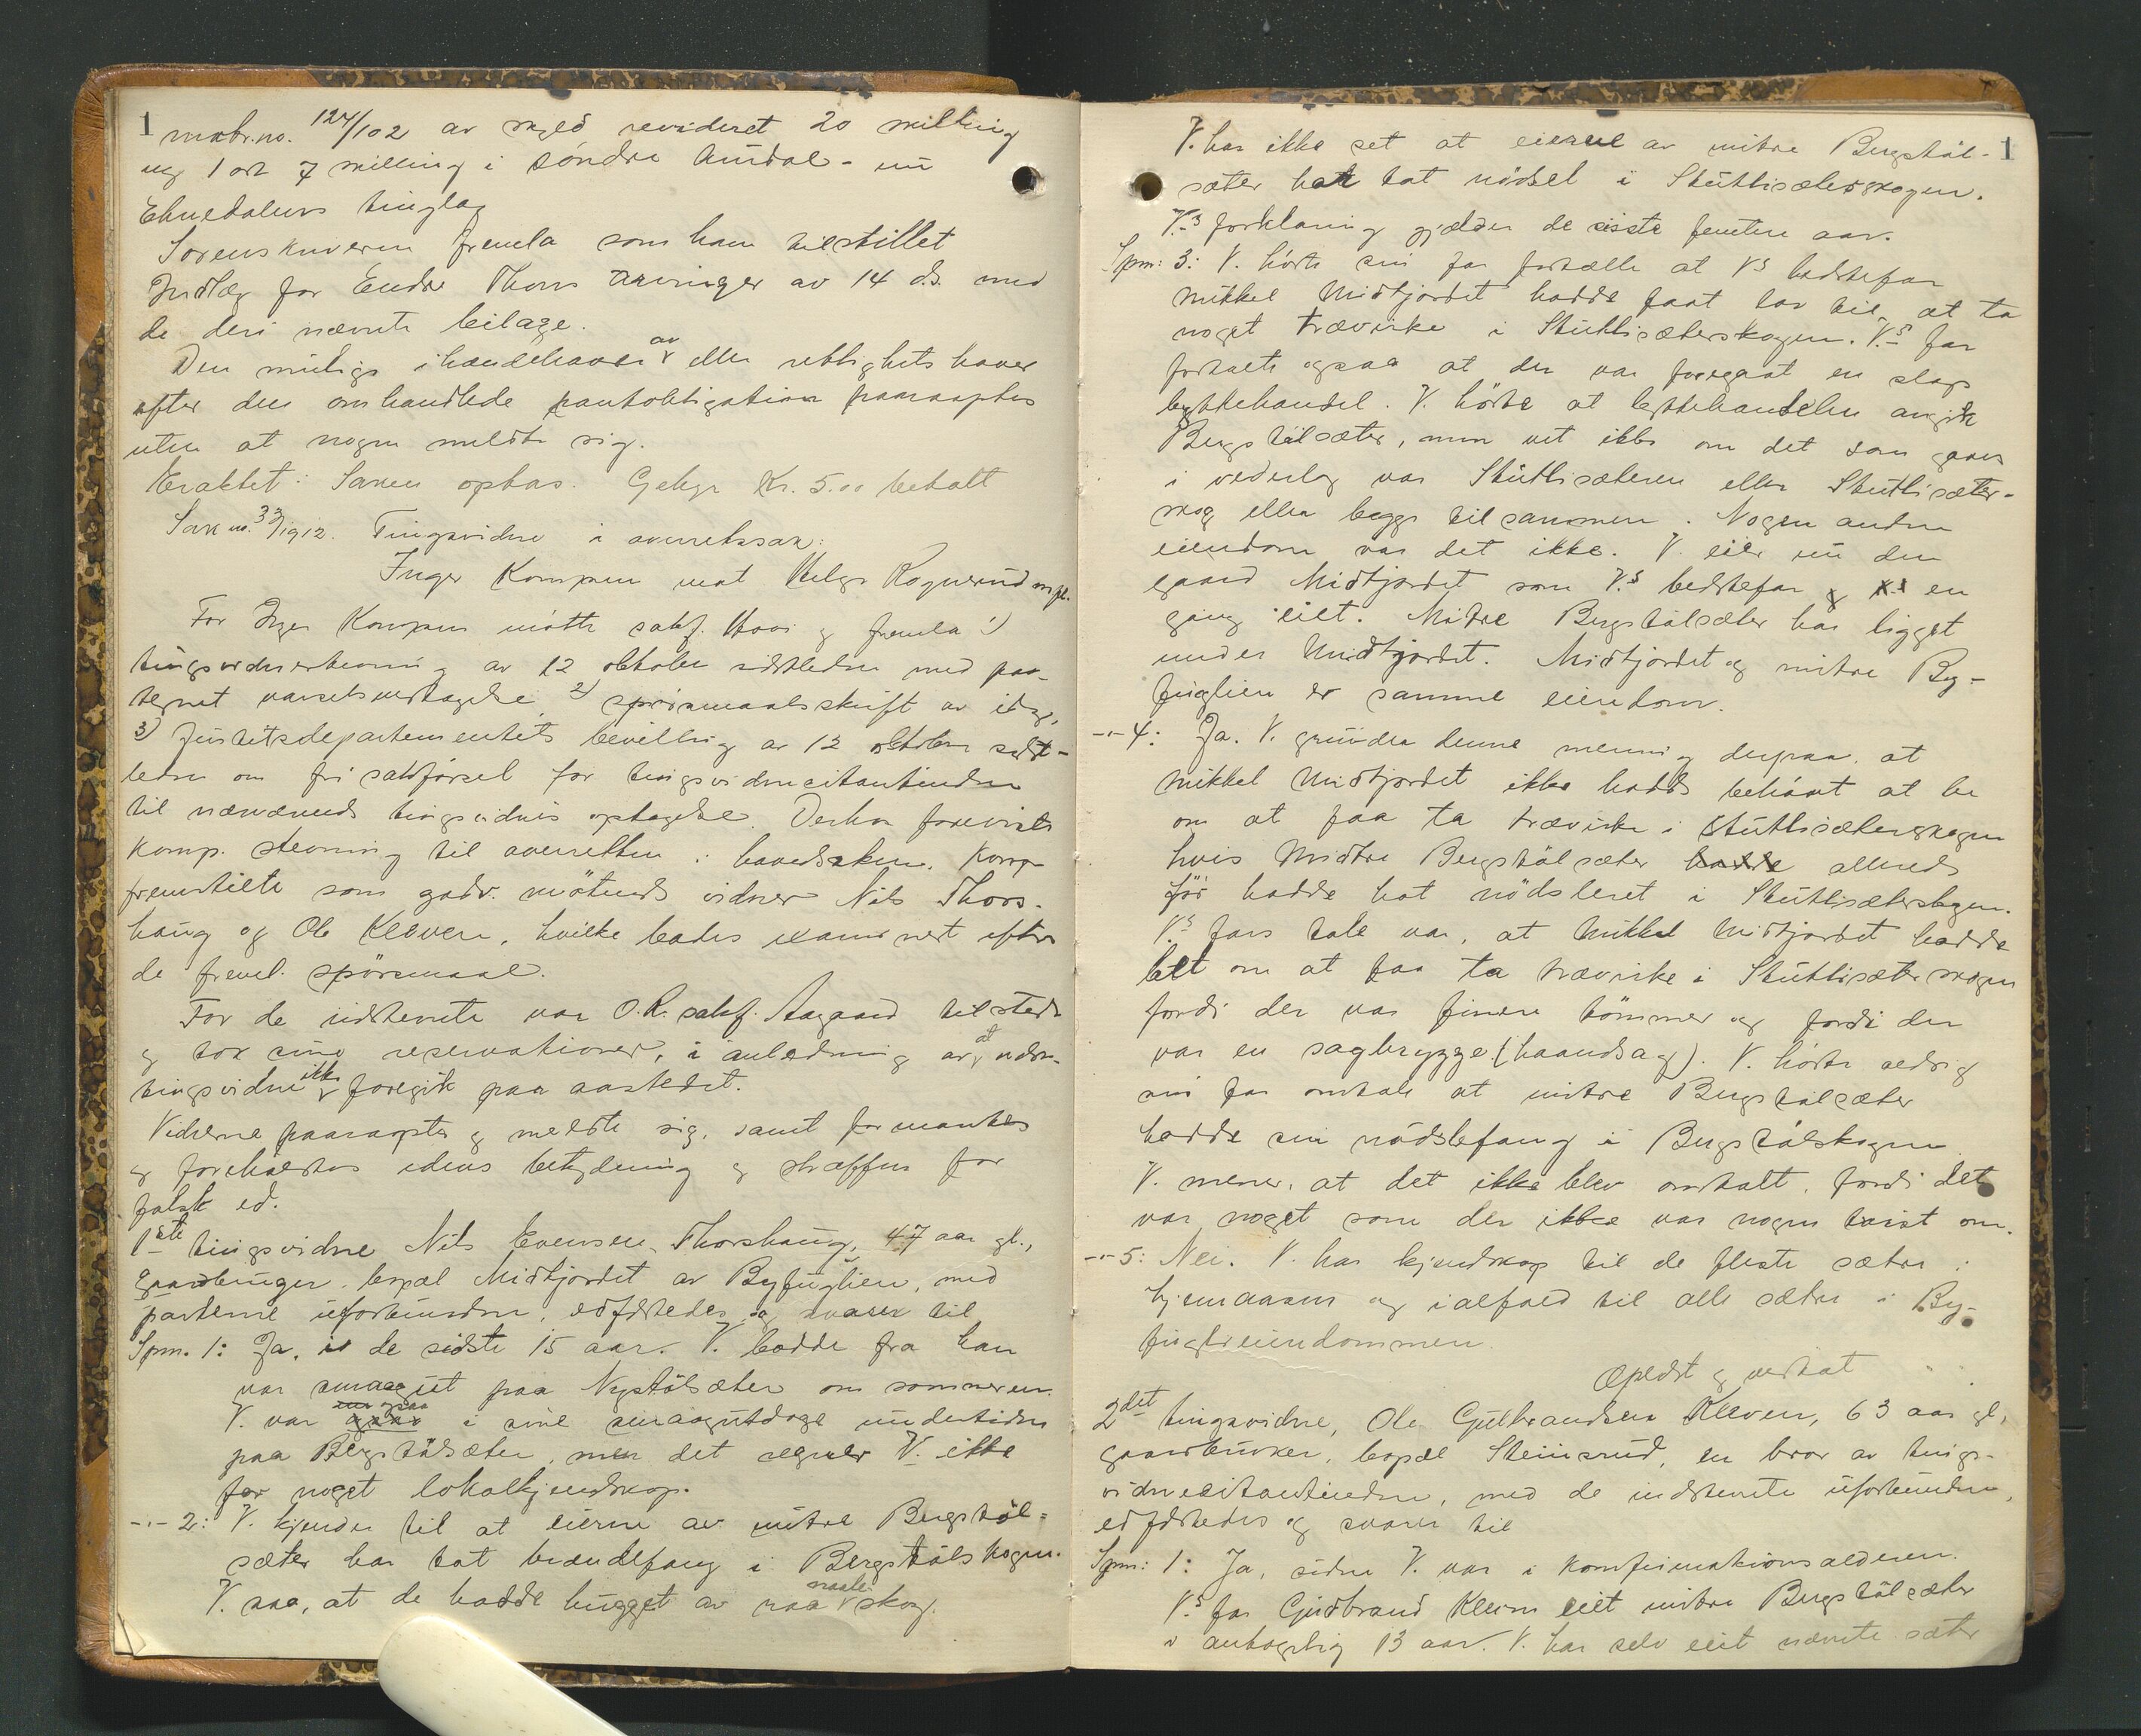 1
matr.no. 124/102 av skyld revideret 20 skilling
og 1 ort 7 skilling i søndre Aurdal - nu
Etnedalens tinglag
Sorenskriveren fremla som ham tilstillet
Indlæg for Endre Thons arvinger av 14 ds. med
de deri nævnte bilage.
Den mulige ihændehaver av eller rettighetshaver
efter den omhandlede pantobligation paaraaptes
uten at nogen meldte sig.
Eraktet: Saken optas. Gebyr Kr. 5.00 betalt
Sak no. 33/1912. Tingsvidne i overretssak:
Inger Kompen mot Helge Rognerud m.fl.
For Inger Kompen møtte sakf. Hovi og fremla 1)
tingsvidnestevning av 12 oktober sidstleden med paa-
tegnet varselsvedtagelse 2) spørsmaalsskrift av idag,
3) Justitsdepartementets bevilling av 12 oktober sidst-
leden om fri sakførsel for tingsvidnecitantinden
til nærværende tingsvidnes optagelse. Derhos forevistes
Komp. stevning til overretten i hovedsaken. Komp.
fremstilte som godv. møtende vidner Nils Thors-
haug og Ole Kleven, hvilke bades examinert efter
de freml. spørsmaal.
For de indstevnte var O.R. sakf. Aagaard tilstede
og tok sine reservationer, i anledning av at uden-
tingsvidne ikke foregik paa aastedet.
Vidnerne paaraaptes og meldte sig, samt formantes
og foreholdtes edens betydning og straffen for
falsk ed.
1ste tingsvidne Nils Evensen Thorshaug, 47 aar gl.,
gaardbruger, bopæl Midtjordet av Byfuglien, med
parterne uforbunden, edfæstedes og svarer til
Spm. 1: Ja, i de sidste 15 aar. V. bodde fra han
var smaagut paa Nystølsæter om sommeren.
V. var ogsaa i sine smaagutdage undertiden
paa Bergstølsæter, men det regner V. ikke
for noget lokalkjendskap.
-"- 2: V. kjender til at eierne av mitre Bergstøl-
sæter har tat brændefang i Bergstølskogen.
V. saa, at de hadde hugget av raa naale skog.
1
V. har ikke set at eierne av mitre Bergstøl-
sæter hat tat nødsel i Stutlisæterskogen.
V.s forklaring gjælder de sisste femten aar.
Spm: 3: V. hørte sin far fortælle at Vs bedstefar
Mikkel Midtjordet hadde faat lov til at ta
noget trævirke i Stutlisæterskogen. V.s far
fortalte ogsaa at der var foregaat en slags
byttehandel. V. hørte at byttehandelen angik
Bergstølsæter, men vet ikke om det som gaves
i vederlag var Stutlisæteren eller Stutlisæter-
skog eller begge tilsammen. Nogen anden
eiendom var det ikke. V. eier nu den
gaard Midtjordet som V.s bedstefar en
gang eiet. Mitre Bergstølsæter har ligget
under Midtjordet. Midtjordet og mitre By-
fuglien er samme eiendom.
-"- 4: Ja. V. grunder denne mening derpaa, at
Mikkel Midtjordet ikke hadde behøvt at be
om at faa ta trævirke i Stutlisæterskogen
hvis Midtre Bergstølsæter hadde allerede
før hadde hat nødsleret i Stutlisæterskogen.
V.s fars tale var, at Mikkel Midtjordet hadde
bett om at faa ta trævirke i Stutlisæterskogen
fordi der var finere tømmer og fordi der
var en sagbrygge (haandsag). V. hørte aldrig
sin far omtale at mitre Bergstølsæter
hadde sin nødslefang i Bergstølskogen
V. mener, at det ikke blev omtalt, fordi det
var noget som der ikke var nogen tvist om.
-"- 5: Nei. V. har kjendskap til de fleste sætre i
hjemaasen og ialfald til alle sætre i By-
fuglieiendommen.
Oplæst og vedtat
2det tingsvidne, Ole Gulbrandsen Kleven, 63 aar gl,
gaardbruker, bopæl Steinsrud, en bror av tings-
vidnecitantinden, med de indstevnte uforbunden,
edfæstedes og svarer til
Spm: 1: Ja, siden V. var i konfirmationsalderen.
V.s far Gudbrand Kleven eiet mitre Bergstølsæter
i antagelig 13 aar. V. har selv eiet nævnte sæter